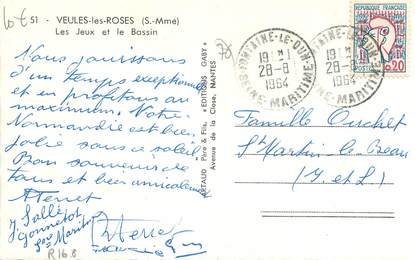 10€
51 - VEULES-les-ROSES (S.-Mme)
Les Jeux et le Bassin
Nous jouissons
d'un temps exceptionnel
et en profitons au
maximum. Notre
Normandie est bien
jolie sous ce soleil
Bon souvenir de
tous et bien amicalement
J. Sallé
Gonnetot
Sne Marit
R168
ARTAUD Père & Fils, "EDITIONS GABY"
Avenue de la Close, NANTES
FONTAINE-LE-DUN
19H
28-8
1964
SEINE-MARITIME
FONTAINE-LE-DUN
19H
28-8
1964
SEINE-MARITIME
0,20
Famille Ouchet
St Martin-le-Beau
(I. et L.)